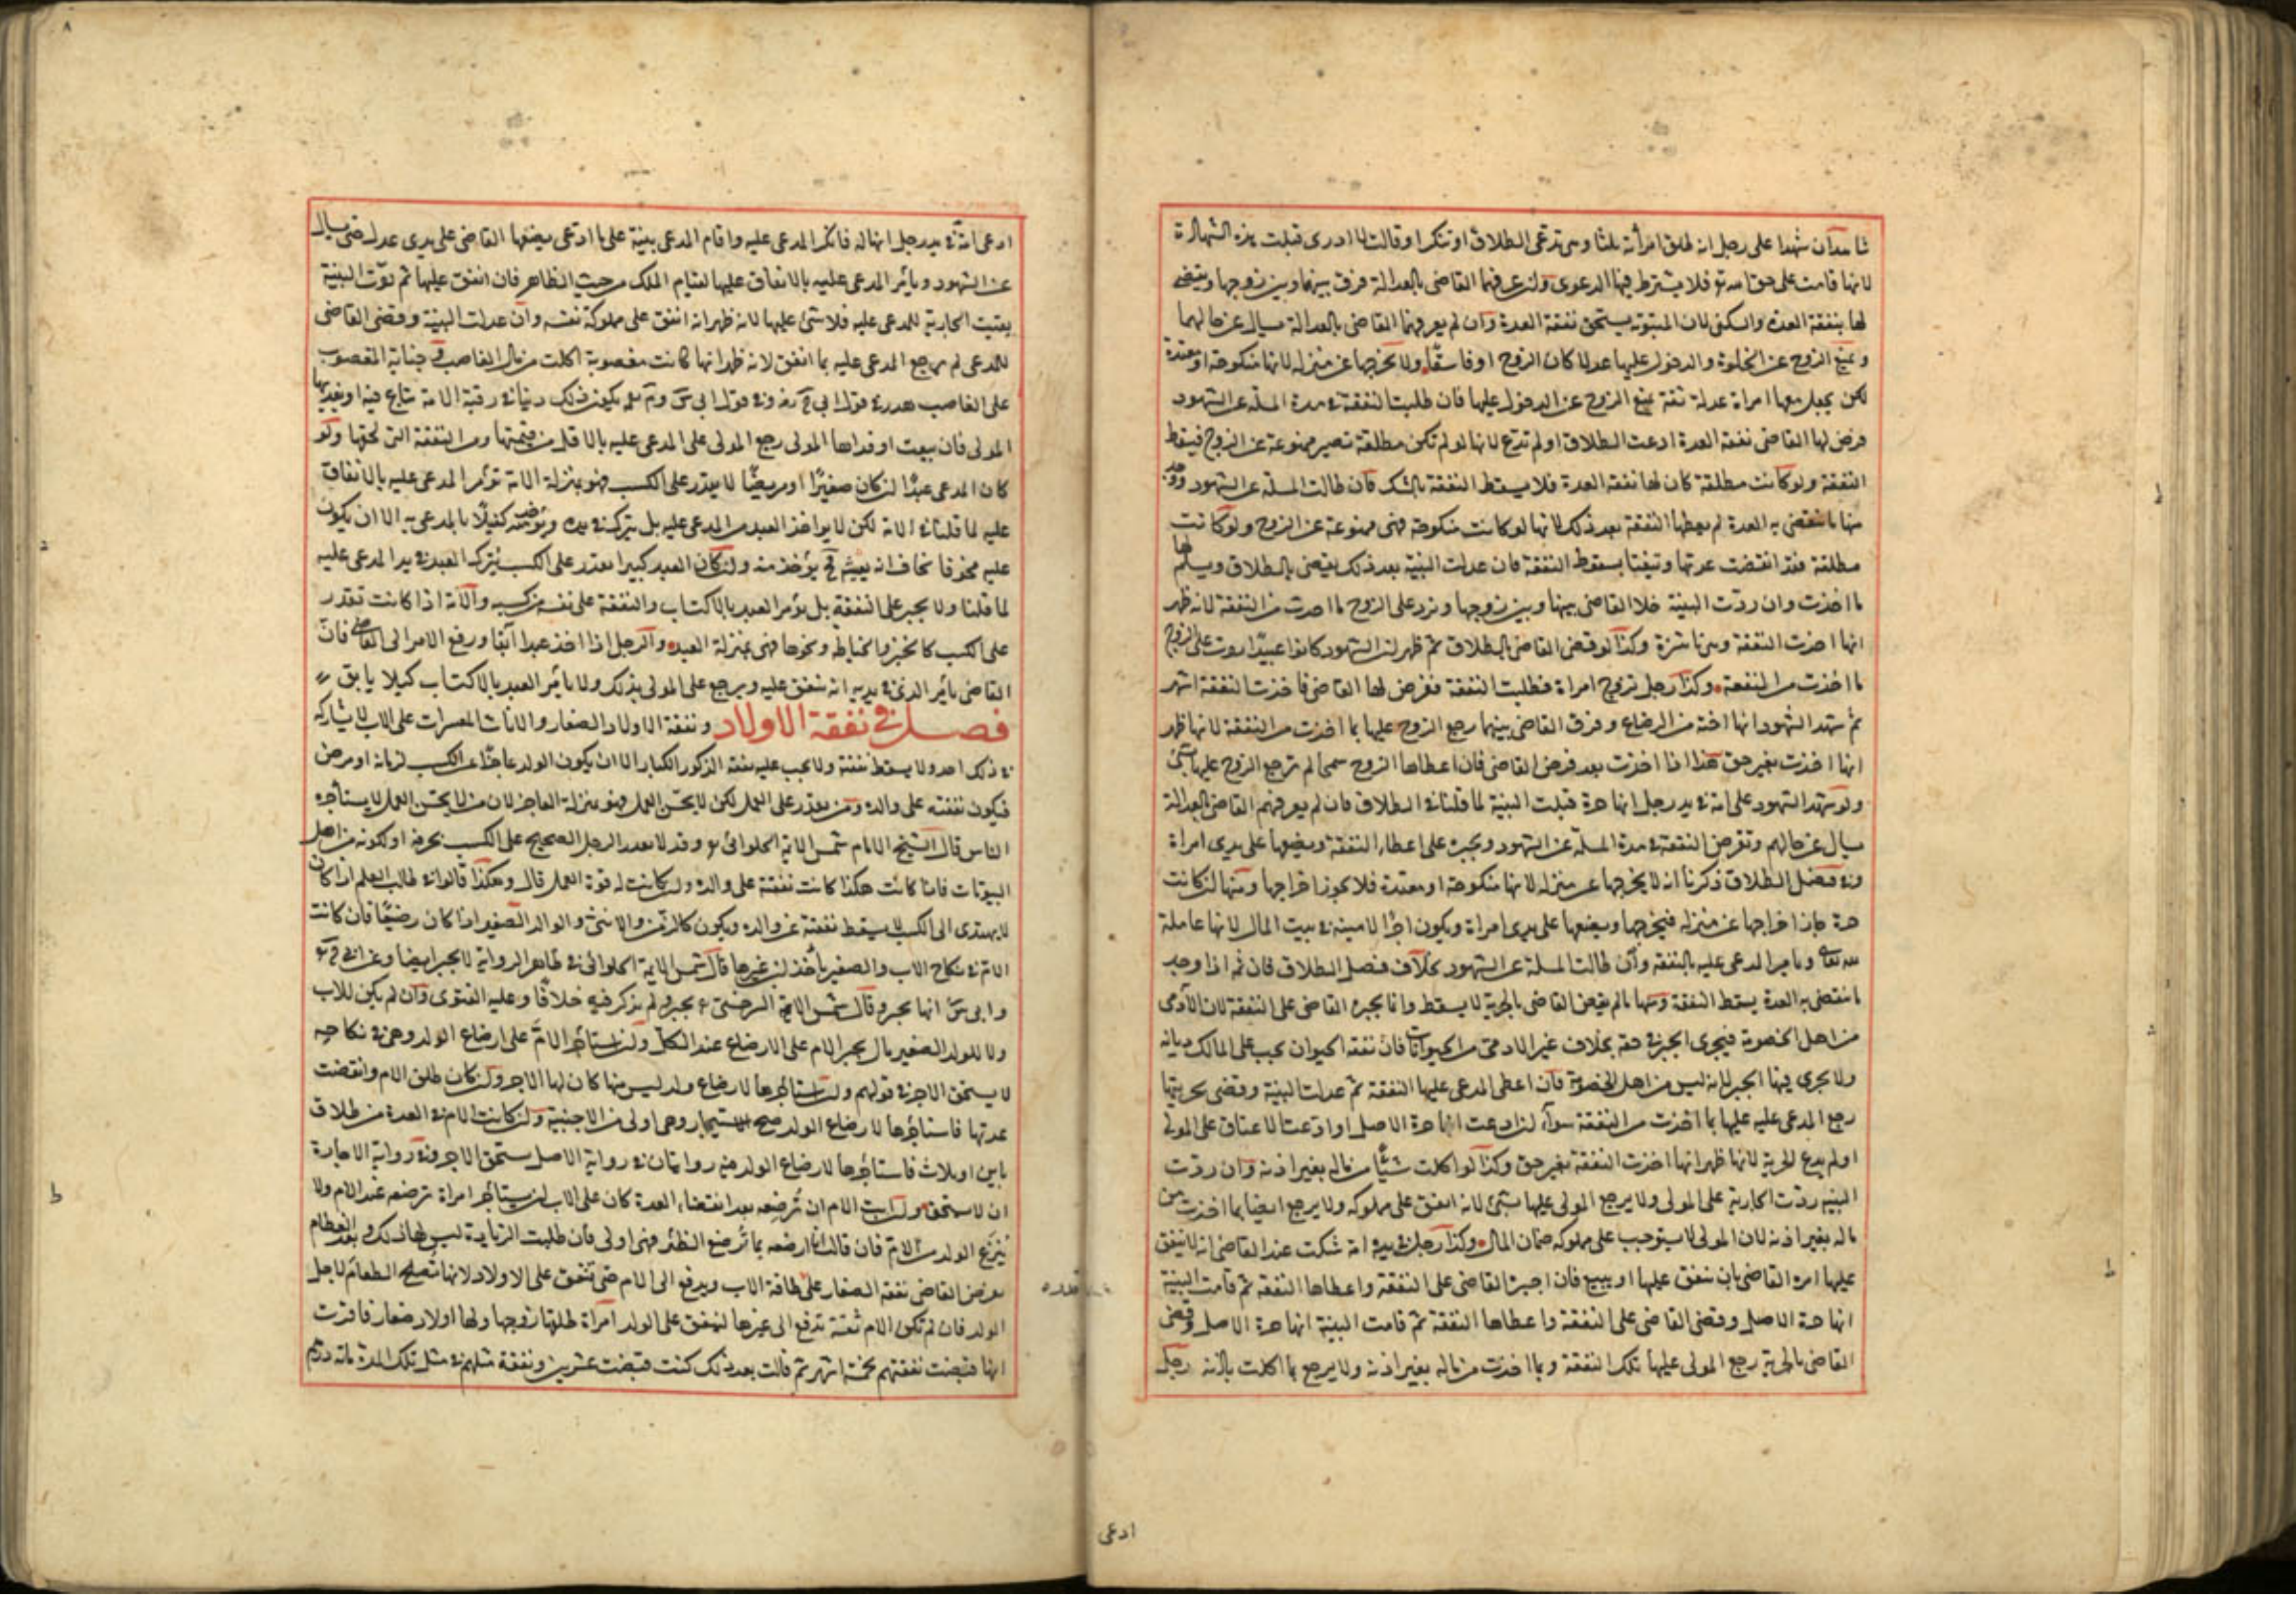 شاهدان شهدا على رجل انه طلق امرأته ثلثا وهى تدعى الطلاق او تنكر او قالت لا ادرى قبلت هذه الشهادة
لانها قامت على حق الله تع فلا يشترط فيها الدعوى ولن عرفهما القاضى بالعدالة فرق بينها وبين زوجها ويقضى
لها بنفقة العدة والسكنى لان المبتوتة يستحق نفقة العدة وان لم يعرفهما القاضى بالعدالة يسال عن حالهما
ويمنع الزوج عن الخلوة والدخول عليها عدلا كان الزوج او فاسقا ولا يخرجها عن منزله لانها منكوحة او معتدة
لكن يجعل معها امراة عدلة ثقة يمنع الزوج عن الدخول عليها فان طلبت النفقة فى مدة المسئلة عن الشهود
فرض لها القاضى نفقة العدة ادعت الطلاق او لم تدع لانها لو لم تكن مطلقة تصير ممنوعة عن الزوج فيسقط
النفقة ولو كانت مطلقة كان لها نفقة العدة فلا يسقط النفقة بالشك فان طالت المسئلة عن الشهود
منها ما ينقضى به العدة لم يعطها النفقة بعد ذلك لانها لو كانت منكوحة فهى ممنوعة عن الزوج ولو كانت
مطلقة فقد انقضت عدتها وتيقنا بسقوط النفقة فان عدلت البينة بعد ذلك يقضى بالطلاق ويسلم لها
ما اخذت وان ردت البينة خلا القاضى بينها وبين زوجها وترد على الزوج ما اخذت من النفقة لانه ظهر
انها اخذت النفقة وهى ناشزة وكذا لو قضى القاضى بالطلاق ثم ظهر لن الشهود كانوا عبيدا ردت على الزوج
ما اخذت من النفقة وكذا رجل تزوج امراة فطلبت النفقة ففرض لها القاضى فاخذت النفقة اشهر
ثم شهد الشهود انها اخته من الرضاع وفرق القاضى بينهما رجع الزوج عليها بما اخذت من النفقة لانها ظهر
انها اخذت بغير حق هذا اذا اخذت بعد فرض القاضى فان اعطاها الزوج سمحا لم يرجع الزوج عليها بشئ
ولو شهد الشهود على امة فى يد رجل انها حرة قبلت البينة لما قلنا فى الطلاق فان لم يعرفهم القاضى بالعدالة
يسال عن حالهم وتفرض النفقة فى مدة المسئلة عن الشهود ويجبره على اعطاء النفقة ويضعها على يدى امراة
وفى فصل الطلاق ذكرنا انه لا يخرجها عن منزله لانها منكوحة او معتدة فلا يجوز اخراجها ومنها لن كانت
حرة جاز اخراجها عن منزله فيخرجها ويضعها على يدى امراة ويكون اجر الامينة فى بيت المال لانها عاملة
لله تعالى ويامر المدعى عليه بالنفقة وان طالت المسئلة عن الشهود بخلاف فصل الطلاق فان ثم اذا وجد
ما ينقضى به العدة يسقط النفقة ومنها ما لم يقض القاضى بالحرية لا يسقط وانما يجبره القاضى على النفقة لان الآدمى
من اهل الخصومة فيجرى الجبر فى حقه بخلاف غير الادمى من الحيوانات فان نفقة الحيوان يجب على المالك ديانة
ولا يجرى فيها الجبر لانه ليس من اهل الخصومة فان اعطى المدعى عليها النفقة ثم عدلت البينة وقضى بحريتها
رجع المدعى عليه عليها بما اخذت من النفقة سواء لن ادعت انها حرة الاصل او ادعت الاعتاق على المولى
او لم يدع الحرية لانها ظهر انها اخذت النفقة بغير حق وكذا لو اكلت شيئا من ماله بغير اذنه وان ردت
البينة ردت الجارية على المولى ولا يرجع المولى عليها بشئ لانه انفق على مملوكه ولا يرجع ايضا بما اخذت من
ماله بغير اذنه لان المولى لا يستوجب على مملوكه ضمان المال وكذا رجل فى يده امة شكت عند القاضى انه لا ينفق
عليها امره القاضى بان ينفق عليها او يبيع فان اجبره القاضى على النفقة واعطاها النفقة ثم قامت البينة
انها حرة الاصل وقضى القاضى على النفقة واعطاها النفقة ثم قامت البينة انها حرة الاصل وقضى
القاضى بالحرية رجع المولى عليها بتلك النفقة وبما اخذت من ماله بغير اذنه ولا يرجع بما اكلت باذنه رجل
ادعى
ادعى امة فى يد رجل انها له فانكر المدعى عليه واقام المدعى بينة على ما ادعى يضعها القاضى على يدى عدل حتى يسال
عن الشهود ويأمر المدعى عليه بالانفاق عليها لقيام الملك من حيث الظاهر فان انفق عليها ثم ردت البينة
بقيت الجارية للمدعى عليه فلا شئ عليها لانه ظهر انه انفق على مملوكة نفسه وان عدلت البينة وقضى القاضى
للمدعى لم يرجع المدعى عليه بما انفق لانه ظهر انها كانت مغصوبة اكلت من مال الغاصب وجناية المغصوب
على الغاصب هدر فى قول ابى ح وفى قول ابى س وم يكون ذلك دينا فى رقبة الامة تباع فيه او يفديها
المولى فان بيعت او فداها المولى رجع المولى على المدعى عليه بالاقل من قيمتها ومن النفقة التى لحقها ولو
كان المدعى عبدا لن كان صغيرا او مريضا لا يقدر على الكسب فهو بمنزلة الامة تؤمر المدعى عليه بالانفاق
عليه لما قلنا فى الامة لكن لا يواخذ العبد من المدعى عليه بل يترك فى يده ويؤخذ منه كفيلا بالمدعى به الا ان يكون
عليه مخوفا يخاف انه يغيبه ح يؤخذ منه ولن كان العبد كبيرا يقدر على الكسب يترك العبد فى يد المدعى عليه
لما قلنا ولا يجبر على النفقة بل يؤمر العبد بالاكتساب والنفقة على نفسه من كسبه والامة اذا كانت تقدر
على الكسب كالخبز والخياطة ونحوها فهى بمنزلة العبد والرجل اذا اخذ عبدا آبقا ورفع الامر الى القاضى فان
القاضى يأمر الذى فى يديه انه ينفق عليه ويرجع على المولى بذلك ولا يأمر العبد بالاكتساب كيلا يابق
فصل فى نفقة الاولاد ونفقة الاولاد الصغار والاناث المعسرات على الاب لا يشاركه
فى ذلك احد ولا يسقط نفقته ولا يجب عليه نفقة الذكور الكبار الا ان يكون الولد عاجزا عن الكسب لزمانة او مرض
فيكون نفقته على والده ومن يقدر على العمل لكن لا يحسن العمل فهو بمنزلة العاجز لان من لا يحسن العمل لا يستأجره
الناس قال الشيخ الامام شمس الائمة الحلوائى وقد لا يقدر الرجل الصحيح على الكسب لحرفة او لكونه من اهل
البيوتات فاذا كانت هكذا كانت نفقته على والده ولن كانت له قوة العمل قال وهكذا قالوا فى طالب العلم اذا كان
لا يهتدى الى الكسب لا يسقط نفقته عن والده ويكون كالزمن والانثى والوالد الصغير اذا كان رضيعا فان كانت
الام فى نكاح الاب والصغير يأخذ لبن غيرها قال شمس الائمة الحلوائى فى ظاهر الرواية لا يجبر ايضا وعن ابى ح
وابى س انها يجبر وقال شمس الائمة السرخسى يجبر ولم يذكر فيه خلافا وعليه الفتوى وان لم يكن للاب
ولا للولد الصغير مال يجبر الام على الارضاع عند الكل ولن استأجر الام على ارضاع الولد وهى فى نكاحه
لا يستحق الاجرة فى قولهم ولن استاجرها لارضاع ولد ليس منها كان لها الاجر ولن كان طلق الام وانقضت
عدتها فاستاجرها لارضاع الولد صح الاستيجار وهى اولى من الاجنبية ولن كانت الام فى العدة من طلاق
باين او ثلاث فاستاجرها لارضاع الولد فيه روايتان فى رواية الاصل يستحق الاجر وفى رواية الاجارة
ان لا يستحق ولن ابت الام ان ترضعه بعد انقضاء العدة كان على الاب لن يستاجر امراة ترضعه عند الام ولا
ينزع الولد من الام فان قالت انا ارضعه بما ترضع الظئر فهى اولى فان طلبت الزيادة ليس لها ذلك وبعد الفطام
يفرض القاضى نفقة الصغار على طاقة الاب ويدفع الى الام حتى تنفق على الاولاد لانها تصلح الطعام لاجل
الولد فان لم تكن الام ثقة تدفع الى غيرها لينفق على الولد امراة طلقها زوجها ولها اولاد صغار فاقرت
انها قبضت نفقتهم خمسة اشهر ثم قالت بعد ذلك كنت قبضت عشرين ونفقة مثلهم فى مثل تلك المدة مائة درهم